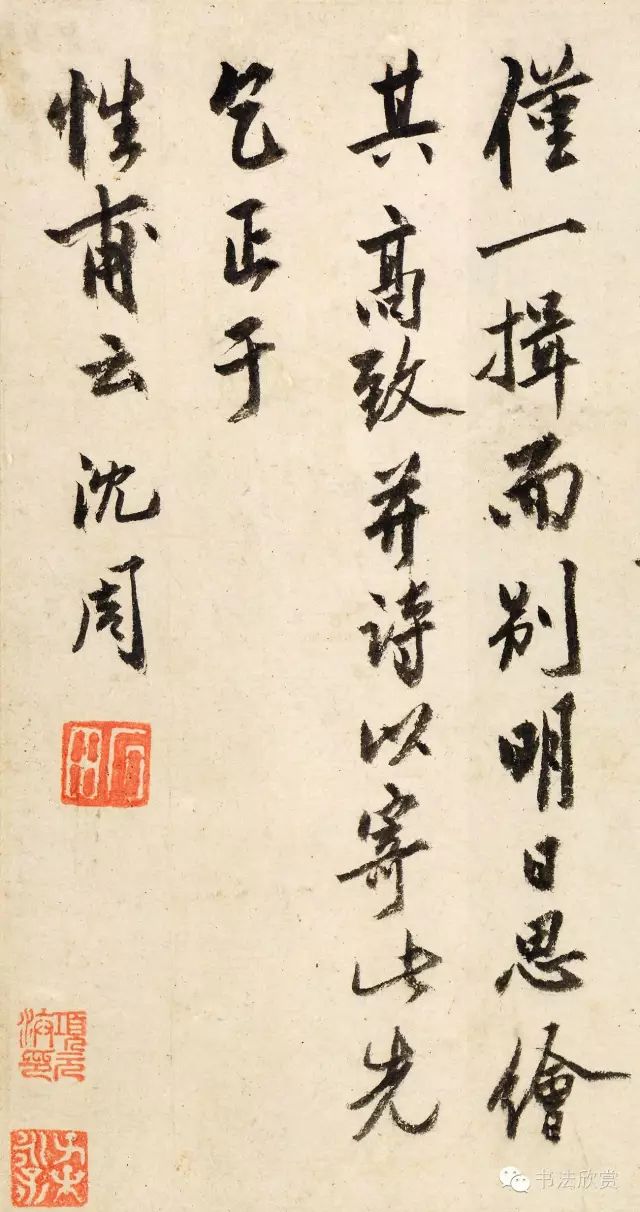 僅一揖而别明日思繪
其高致并詩以寄此先
乞正于
性甫云沈周
石田
項元
書法欣赏